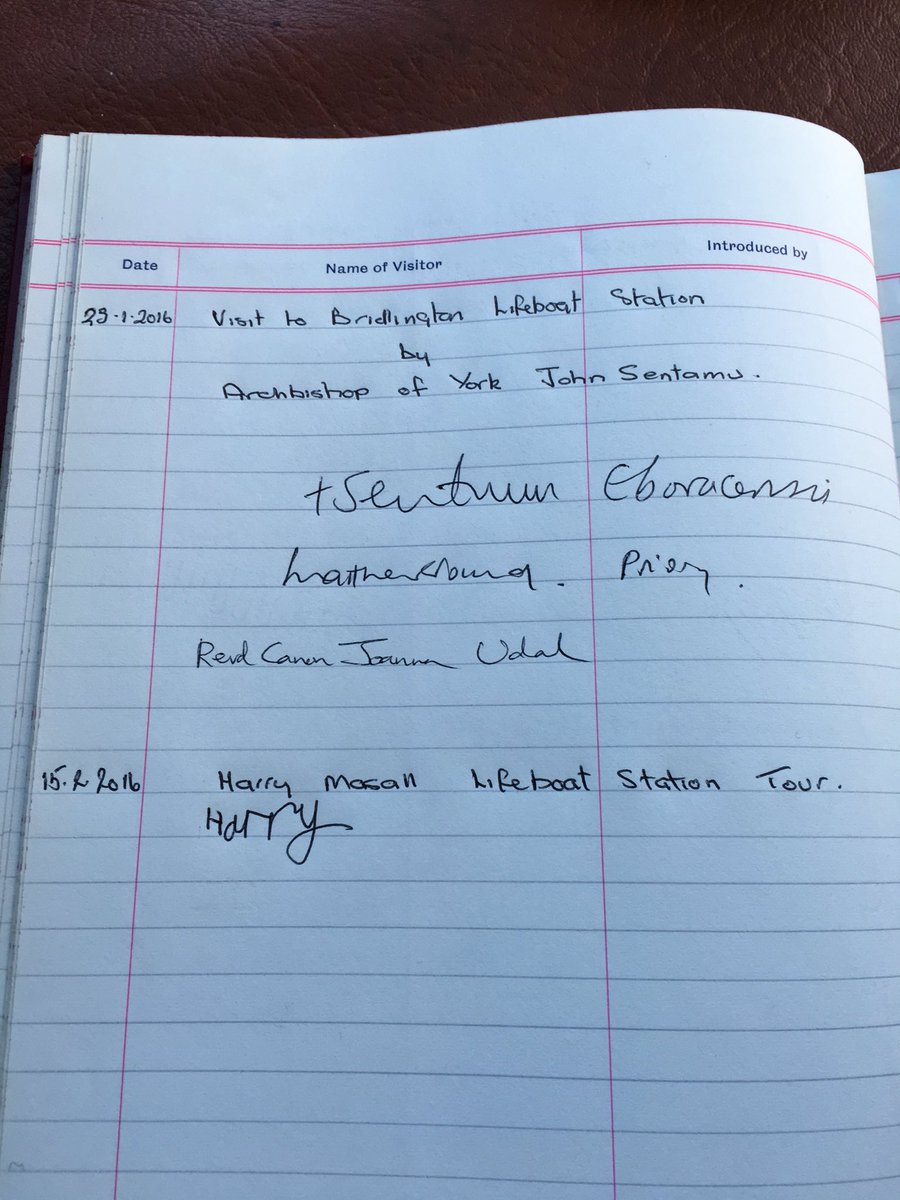 Date Name of Visitor Introduced by
23.1.2016 Visit to Bridlington Lifeboat Station
by
Archbishop of York John Sentamu.
+Sentamu Eboracensis
Priory.
Revd Canon Joanna Udal
15.2 2016 Harry Mosall Lifeboat Station Tour.
Harry